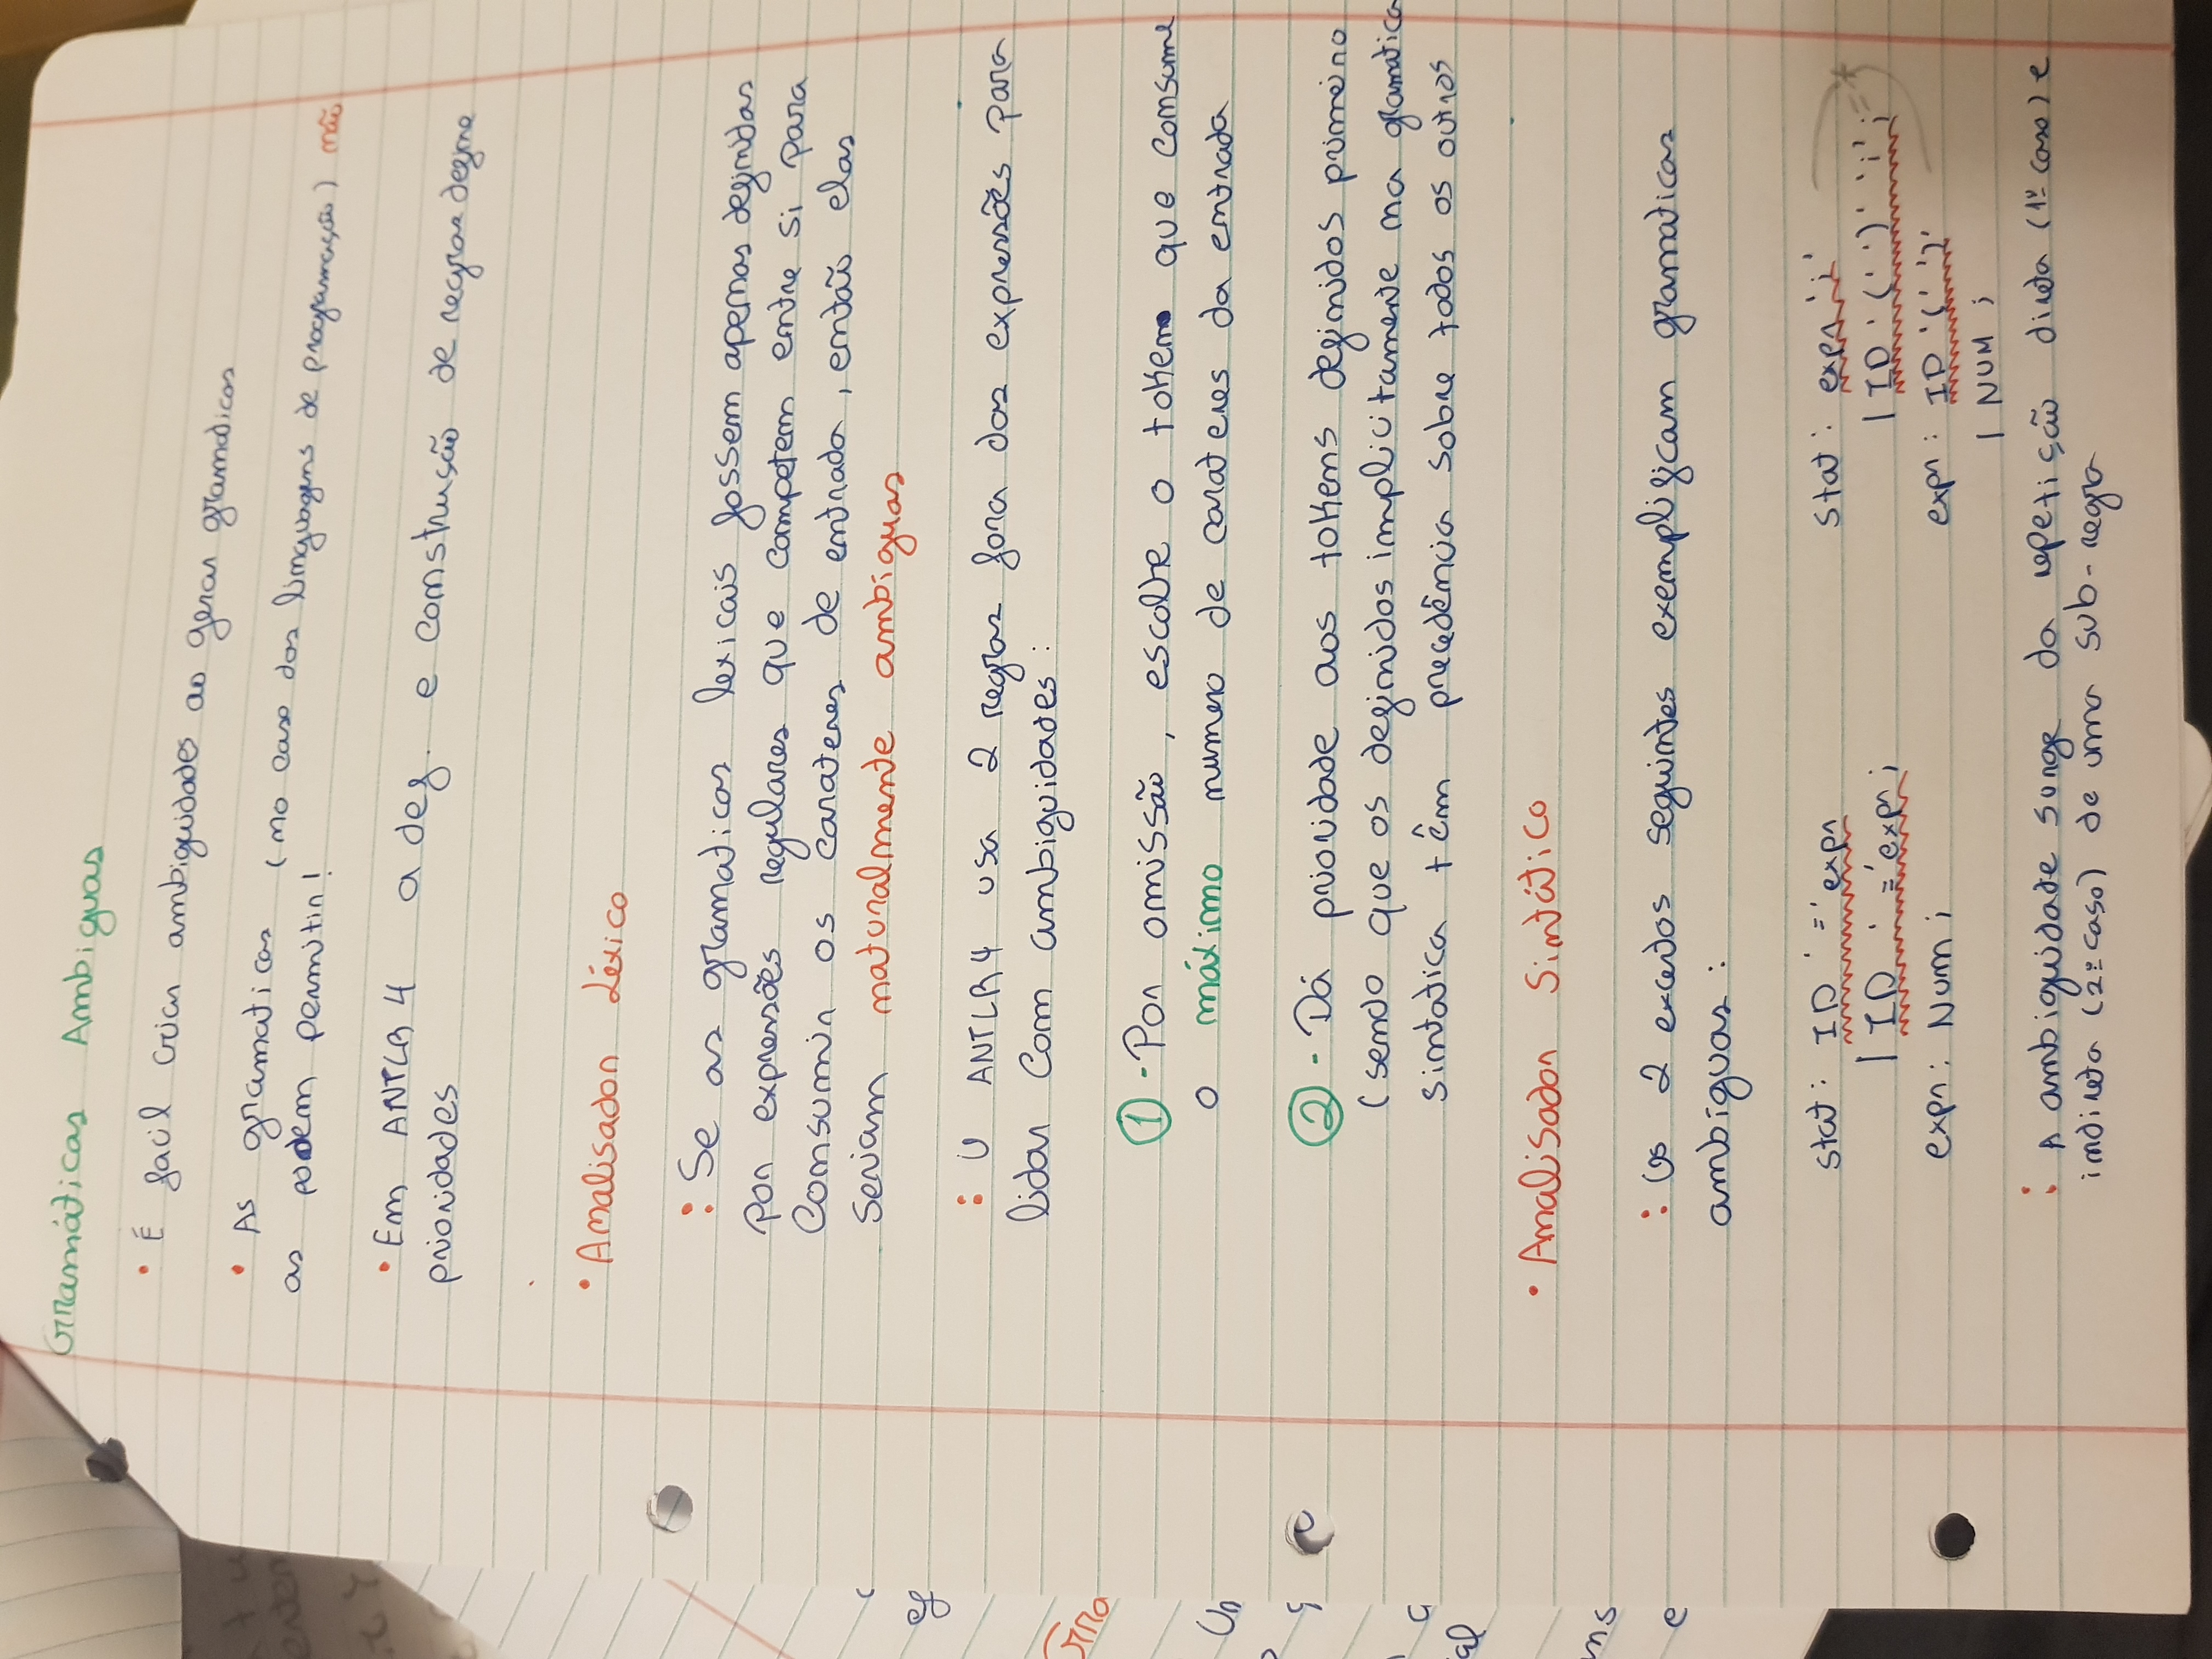 Gramáticas Ambiguas
• É facil criar ambiguidades ao gerar gramaticas
• As gramaticas (no caso das linguagens de programação) não
as podem permitir!
• Em ANTLR4 a def. e construção de regras define
prioridades
• Analisador Léxico
: Se as gramaticas lexicais fossem apenas definidas
por expressões regulares que competem entre si para
consumir os carateres de entrada, então elas
seriam naturalmente ambíguas
: O ANTLR4 usa 2 regras fora das expressões para
lidar com ambiguidades:
① - Por omissão, escolhe o token que consume
o máximo numero de carateres da entrada
② - Dá prioridade aos tokens definidos primeiro
(sendo que os definidos implicitamente na gramatica
sintatica têm precedência sobre todos os outros
• Analisador Sintático
: Os 2 excertos seguintes exemplificam gramaticas
ambíguas:
stat: ID '=' expr
| ID '=' expr;
expr: Num;
stat: expr ';'
| ID '(' ')' ';';
expr: ID '(' ')'
| NUM ;
: A ambiguidade surge da repetição direta (1º caso) e
indireta (2º caso) de uma sub-regra